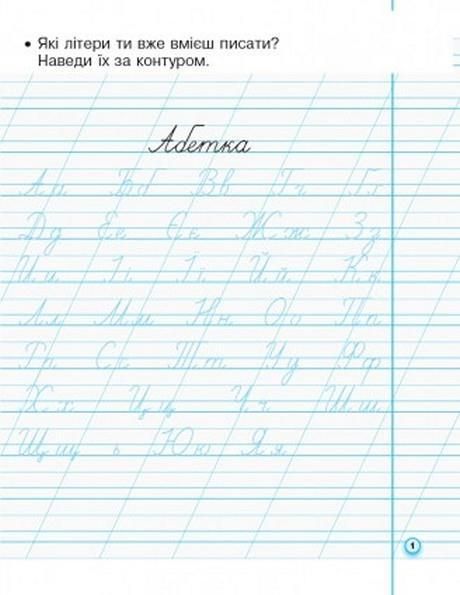 • Які літери ти вже вмієш писати?
Наведи їх за контуром.
Абетка
Аа Бб Вв Гг Ґґ
Дд Ее Єє Жж Зз
Ии Іі Її Йй Кк
Лл Мм Нн Оо Пп
Рр Сс Тт Уу Фф
Хх Цц Чч Шш
Щщ ь Юю Яя
1